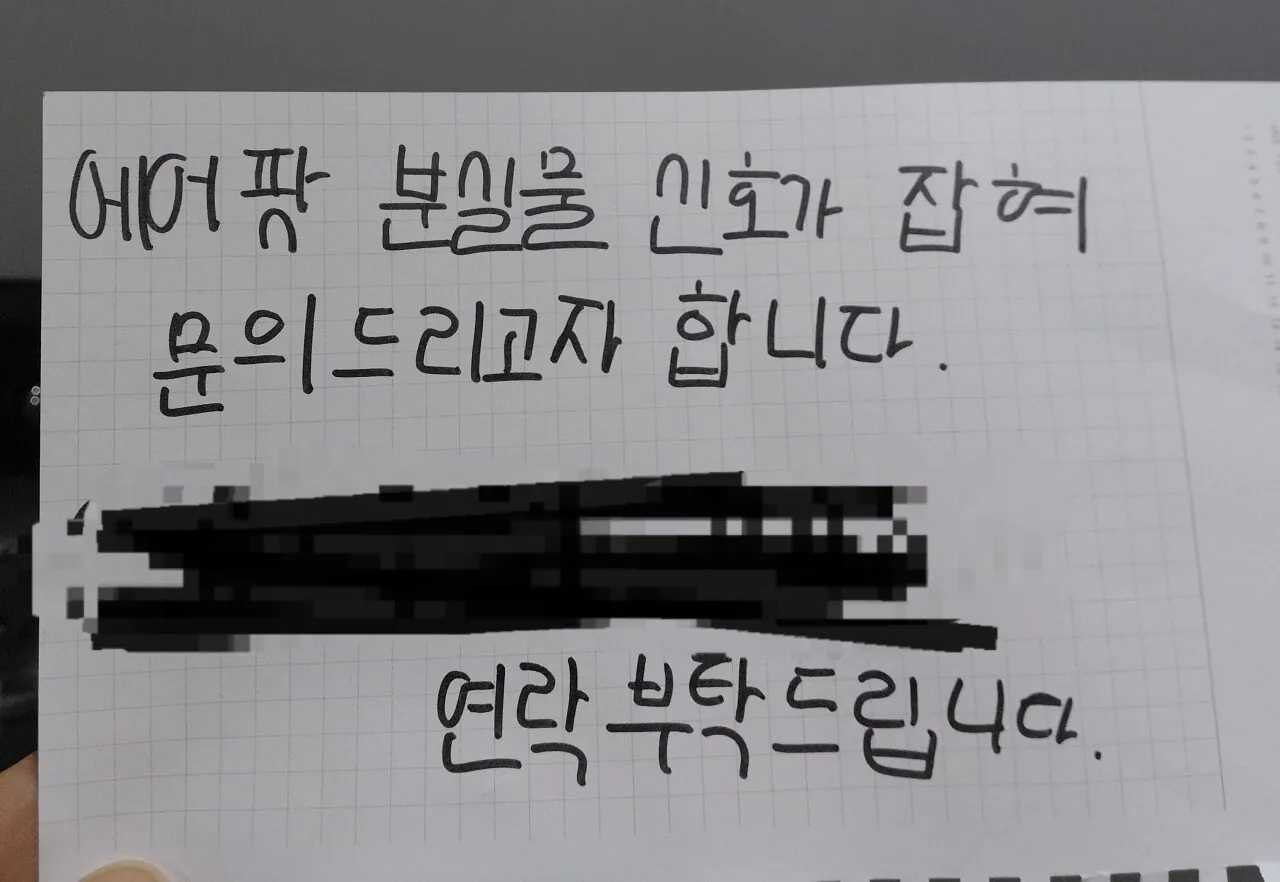 에어팟 분실물 신호가 잡혀
문의드리고자 합니다.
연락 부탁드립니다.